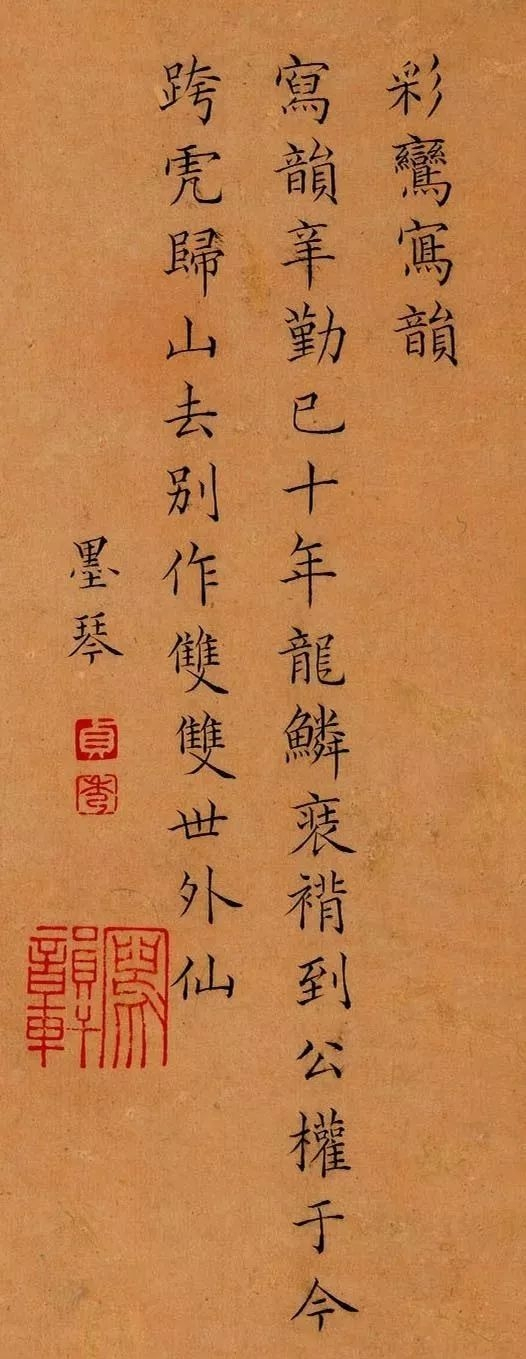 彩鸞寫韻
寫韻辛勤已十年龍鱗袠褙到公權于今
跨虎歸山去別作雙雙世外仙
墨琴
貞
秀
寫韻軒